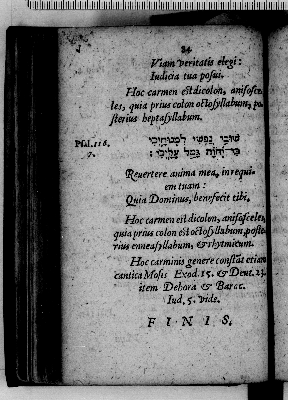 84
Viam veritatis elegi:
Iudicia tua posui.
Hoc carmen est dicolon, anisosce-
les, quia prius colon octosyllabum, po-
sterius heptasyllabum.
Psal. 116.
7.
שׁוּבִי נַפְשִׁי לִמְנוּחָיְכִי
כִּי־יְהוָֹה גָּמַל עָלָיְכִי׃
Revertere anima mea, in requi-
em tuam:
Quia Dominus, benefecit tibi.
Hoc carmen est dicolon, anisosceles,
quia prius colon est octosyllabum, poste-
rius enneasyllabum, & rhytmicum.
Hoc carminis genere constāt etiam
cantica Mosis Exod. 15. & Deut.
item Debora & Barac.
Iud. 5. vids.
FINIS.